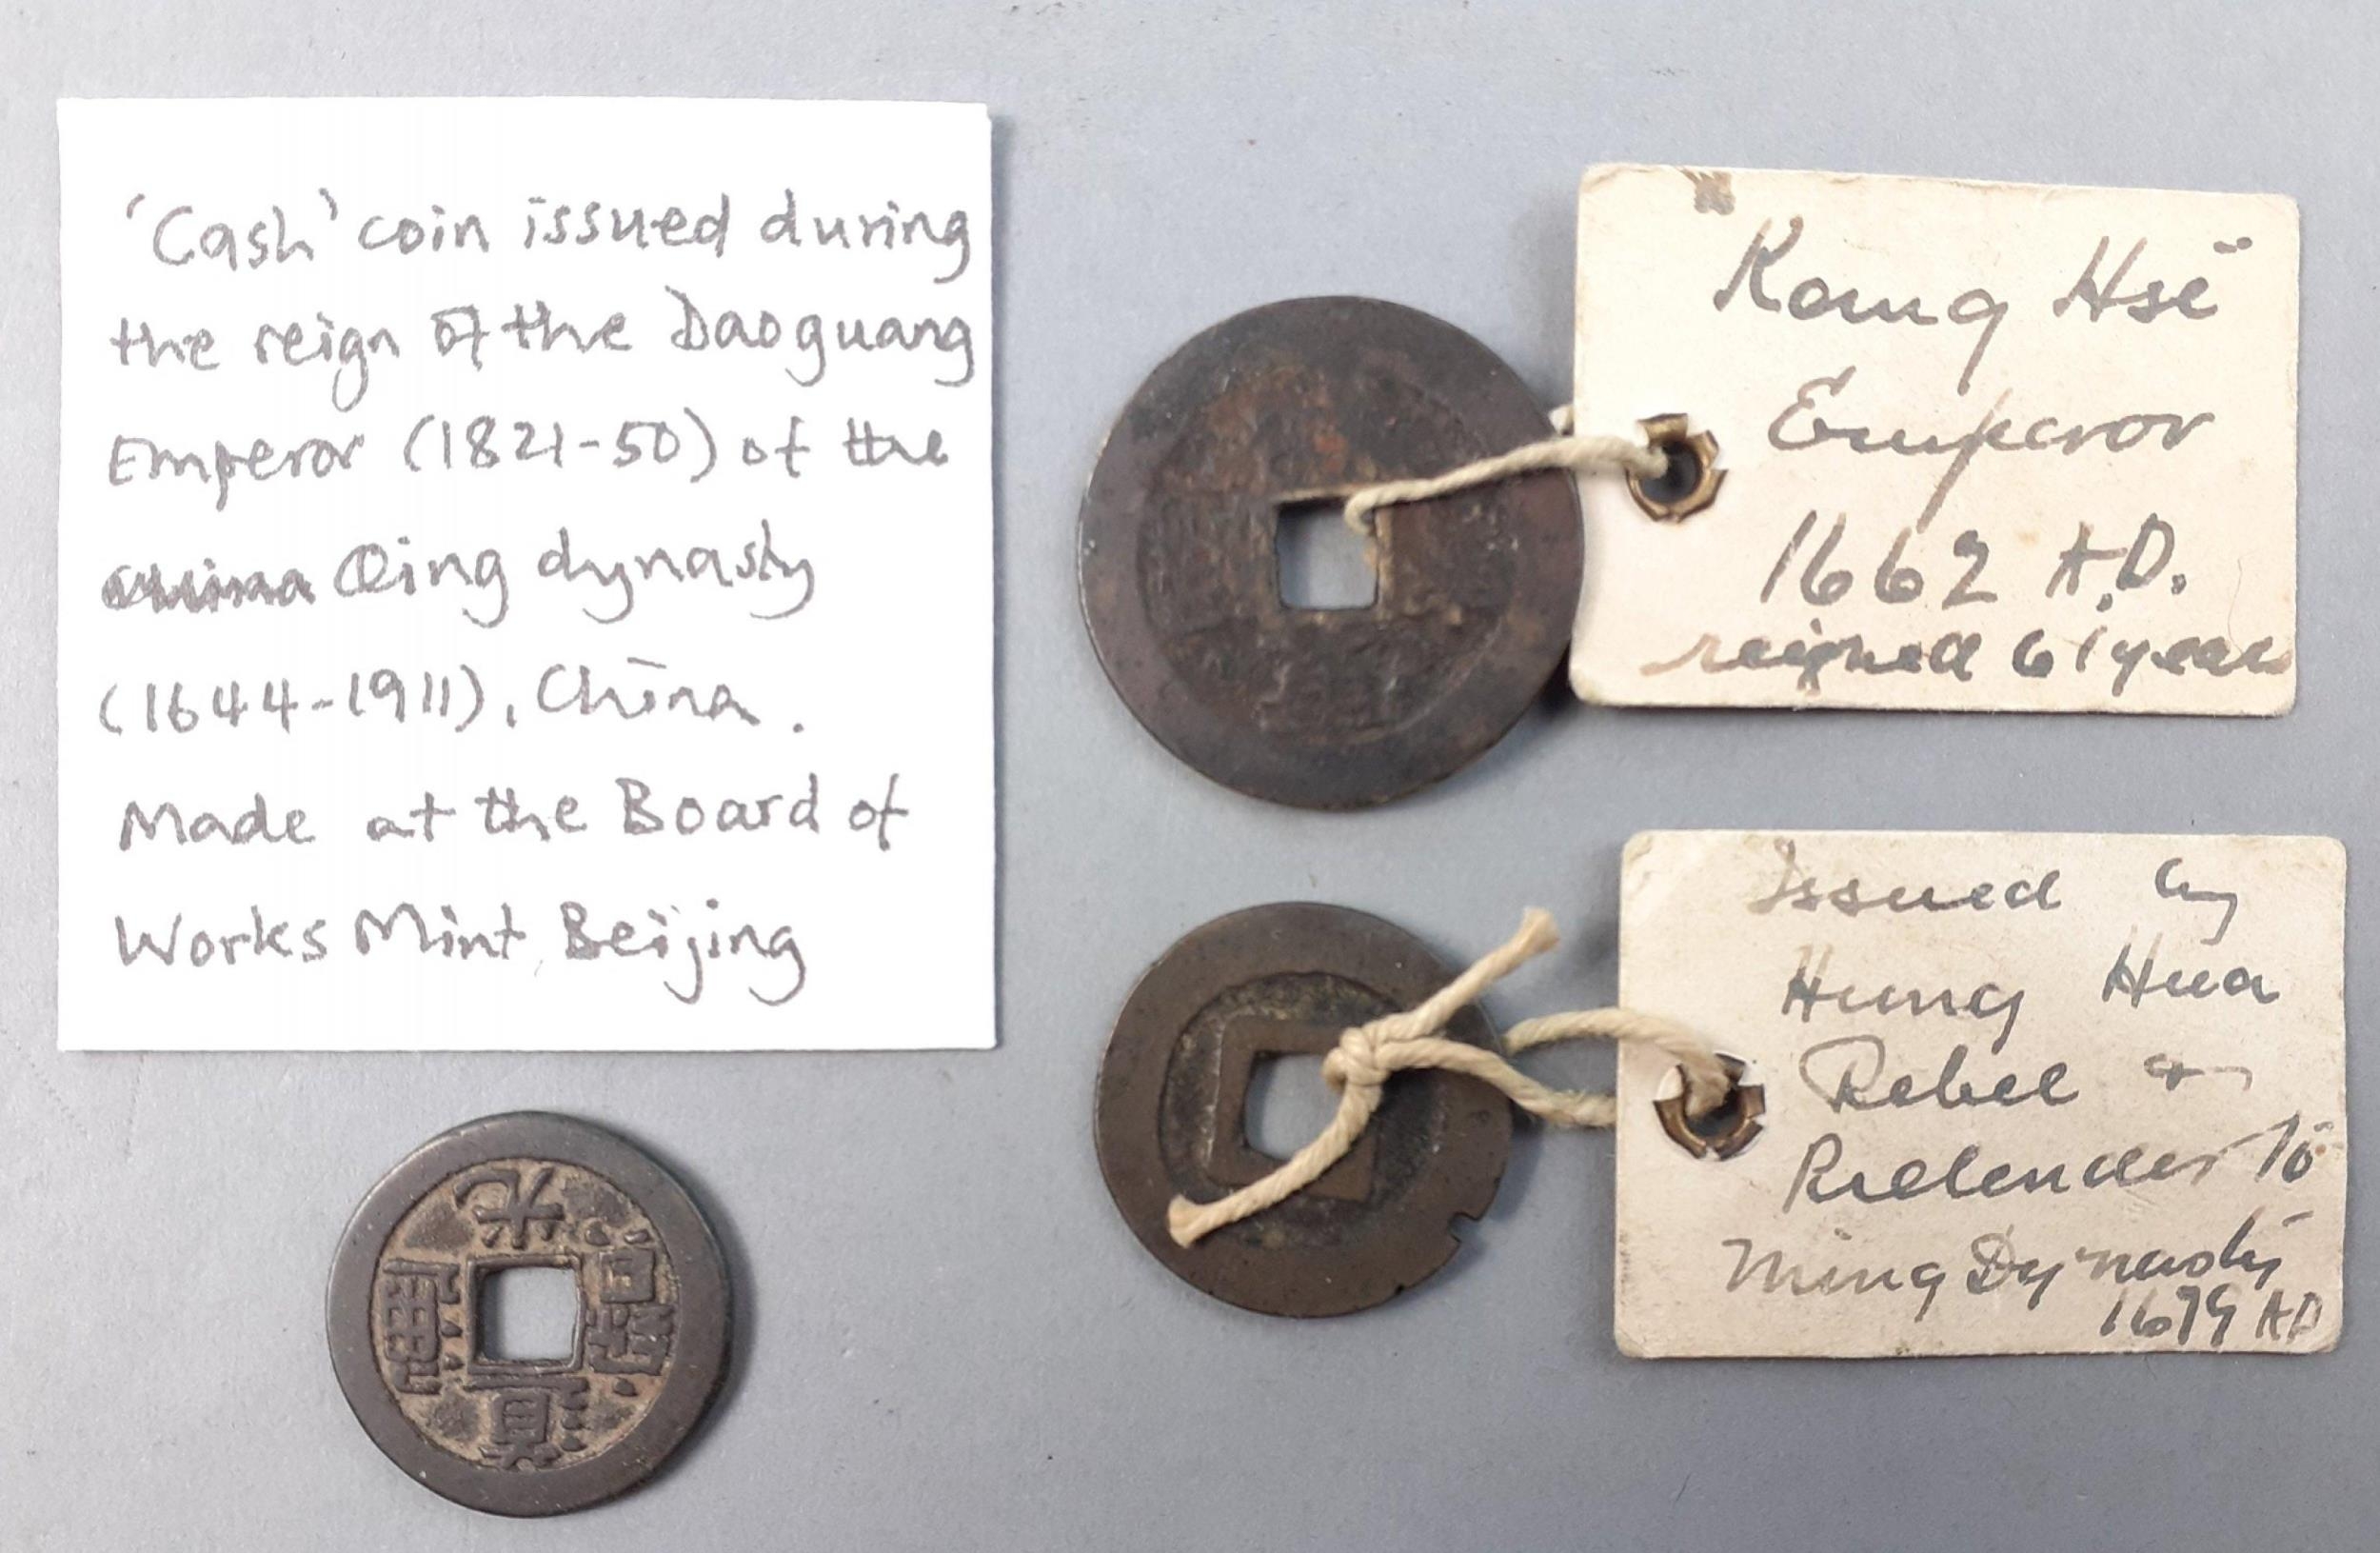 'Cash' coin issued during
the reign of the Daoguang
Emperor (1821-50) of the
Qing dynasty
(1644-1911), China.
Made at the Board of
Works Mint, Beijing
道光通寶
Kang Hsi
Emperor
1662 A.D.
reigned 61 years
Issued by
Hung Hua
Rebel &
Pretender to
Ming Dynasty
1679 AD